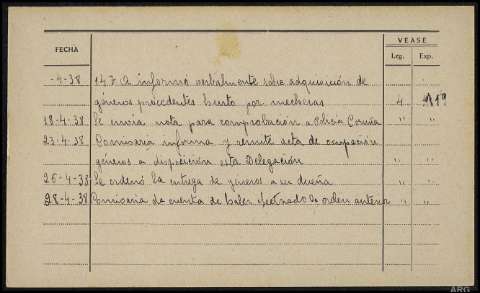 VEASE
FECHA Leg. Exp.
-4-38 147 O informó verbalmente sobre adquisición de
géneros procedentes hurto por mecheras 4
18-4-38 Se envia nota para comprobación a Policia Coruña " "
23-4-38 Comisaria informa y remite acta de ocupación
géneros a disposición esta Delegación " "
26-4-38 Se ordenó la entrega de géneros a su dueña " "
28-4-38 Comisaria da cuenta de haber efectuado la orden anterior " "
ARG